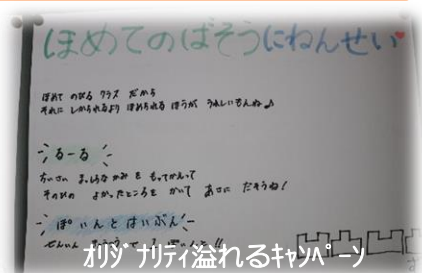 ほめてのばそうにねんせい
ほめて のびる クラス だから
それに しかられるより ほめられる ほうが うれしいもんね♪
るーる
ちいさい まっしろな かみ を もってかえって
そのひの よかったところを かいて あさに だそうね!
ぽいんとはいぶん
ぜんいん
ｵﾘｼﾞﾅﾘﾃｨ溢れるｷｬﾝﾍﾟｰﾝ